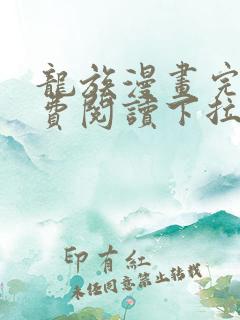 龍族漫畫完
費閱讀下拉
印有紅
未经同意禁止转载